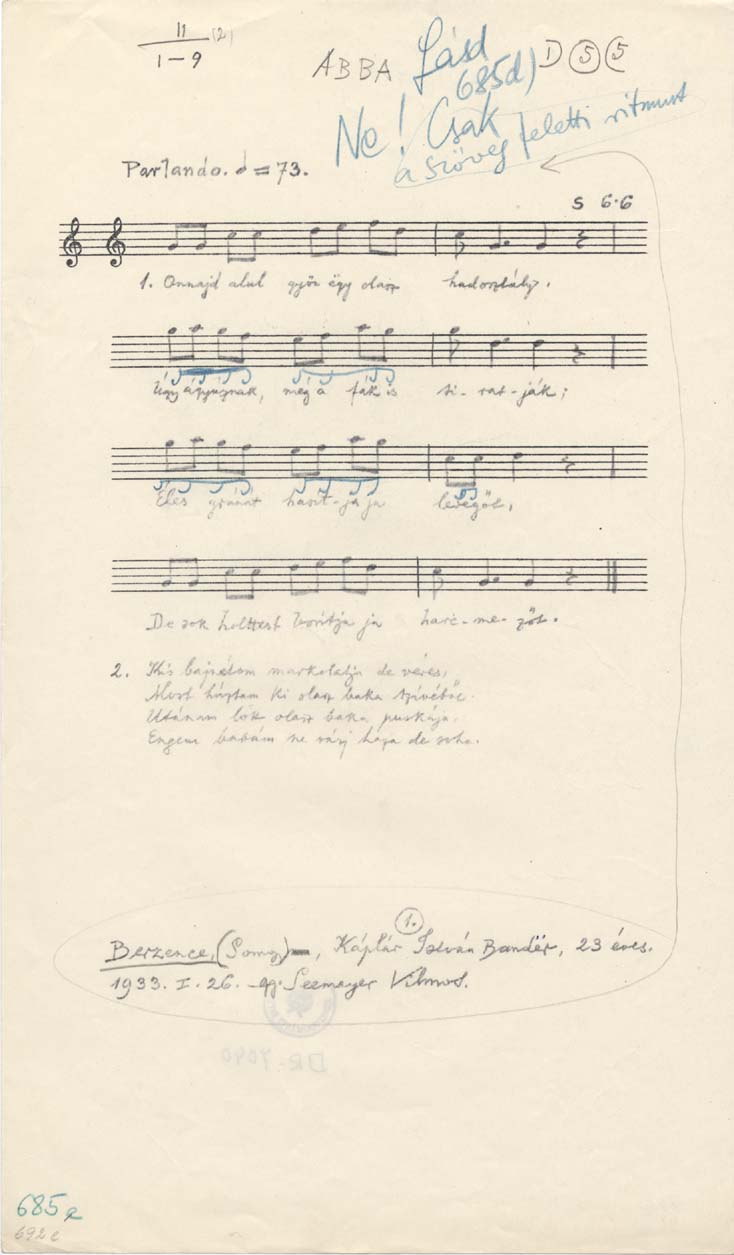 11 (2)
1–9
ABBA
D 5 5
Lásd
685d)
Ne! Csak
a szöveg feletti ritmust
Parlando. = 73.
S 6·6
1. Onnajd alul gyön ëgy olasz hadosztály.
Úgy ágyúznak, még a fák is si-rat-ják;
Éles gránát hasít-ja ja levegőt,
De sok holttest borítja ja harc-me-zőt.
2. Kis bajnétom markolatja de véres,
Most húztam ki olasz baka szívéből.
Utánam lök olasz baka puskája,
Engem babám ne várj haza de soha.
1.
Berzence, (Somogy), Káplár István Bandër, 23 éves.
1933. I. 26. –gy. Seemayer Vilmos.
DR-7040
685e
692e